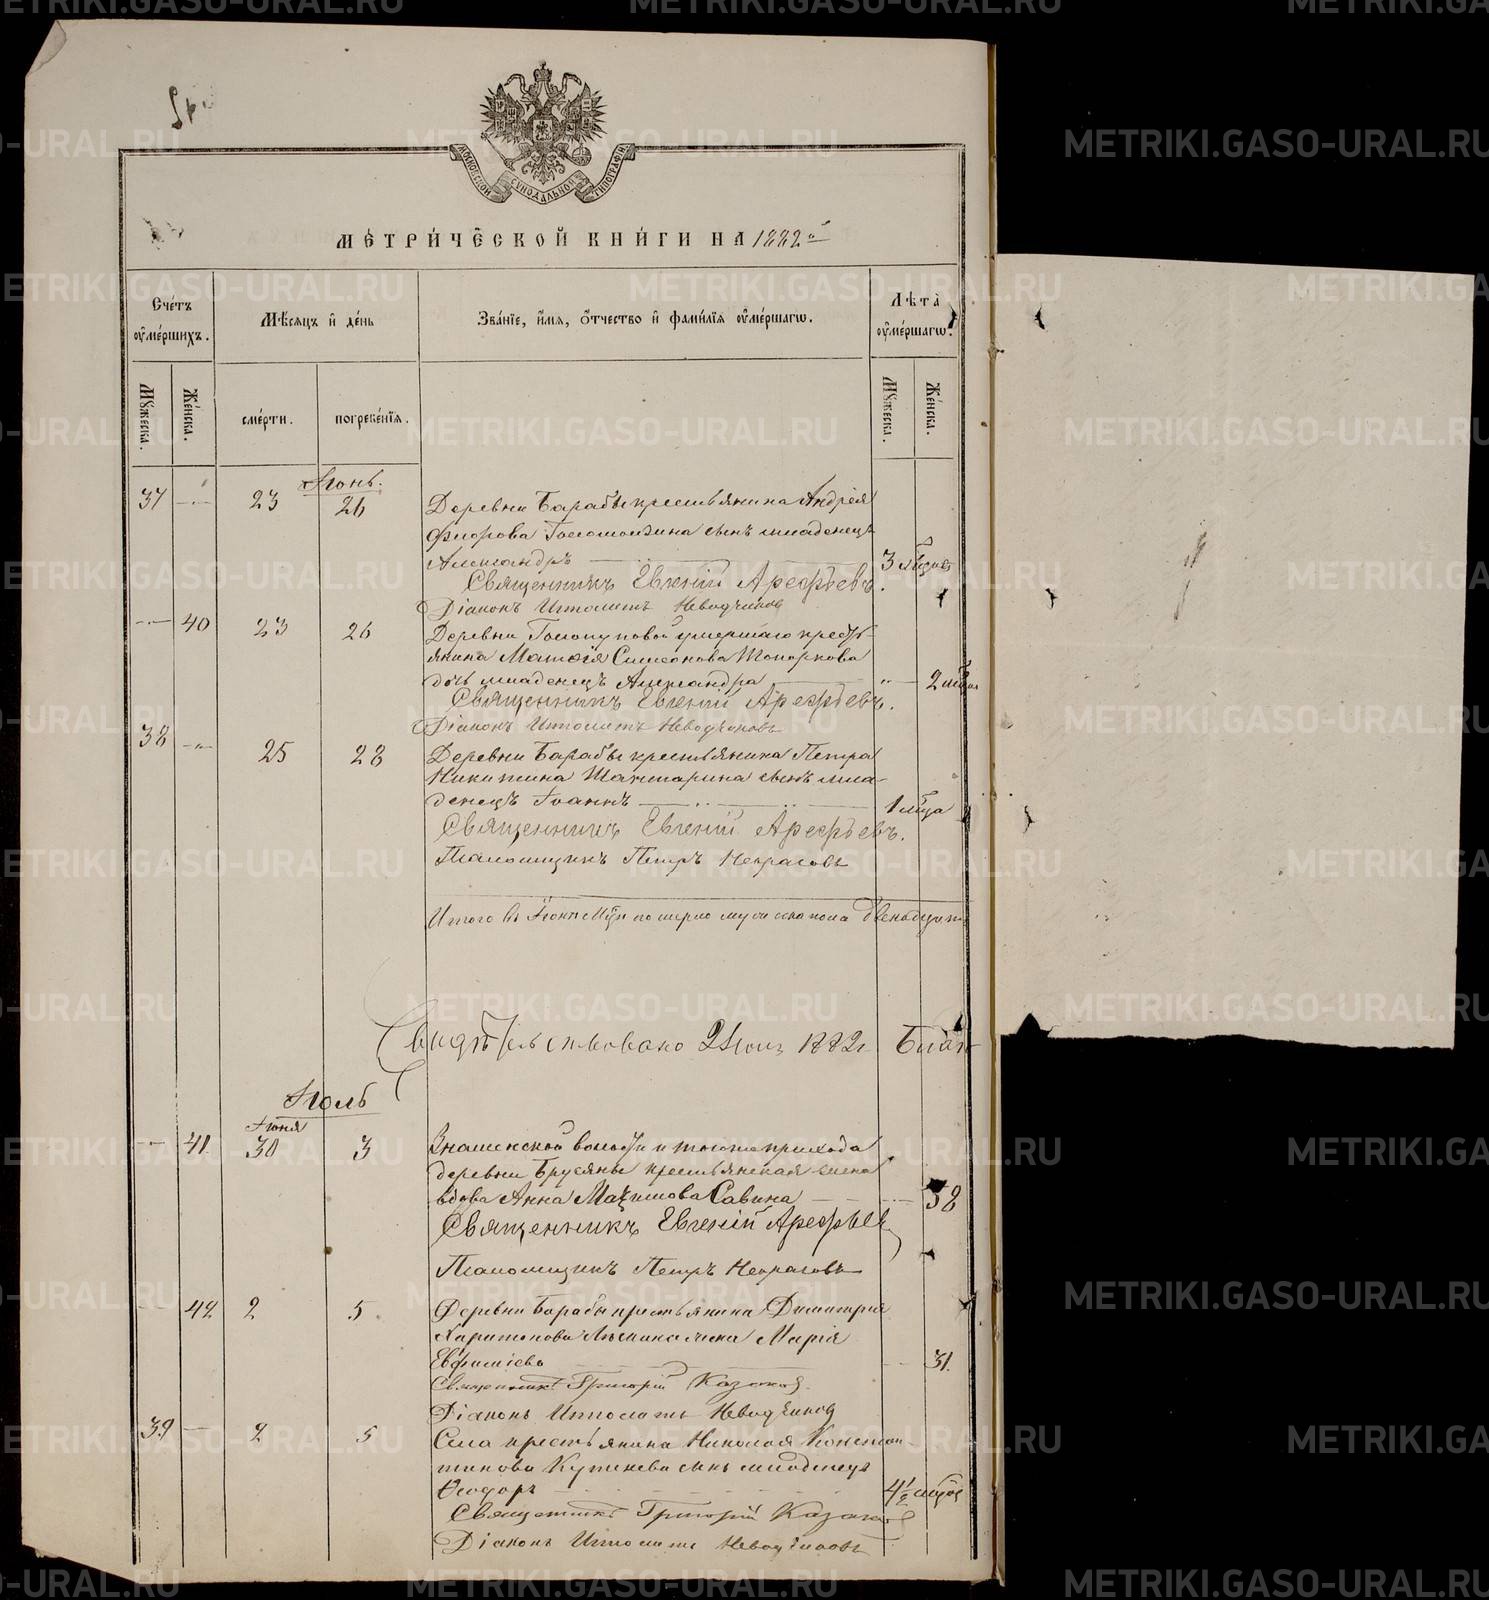 МОСКОВСКОЙ СѴНОДАЛЬНОЙ ТИПОГРАФІИ
МЕТРИЧЕСКОЙ КНИГИ НА 1882 й
Счетъ оумершихъ.
Мѣсяцъ и день
Званїе, имя, отчество и фамилїя оумершагѡ.
Лѣта оумершагѡ.
Мужеска.
Женска.
смерти.
погребенїя.
Мужеска.
Женска.
Іюнь.
37 — 23 26 Деревни Барабы крестьянина Андрея
Флорова сынъ младенецъ
Александръ 3 мѣцевъ
Священникъ Евгеній Арефьевъ.
Діаконъ Ипполитъ Неводчиковъ
— 40 23 26 Деревни умершаго кресть-
янина Матѳія Симеонова Топоркова
дочь младенецъ Александра — 2 мѣцевъ
Священникъ Евгеній Арефьевъ.
Діаконъ Ипполитъ Неводчиковъ
38 — 25 28 Деревни Барабы крестьянина Петра
Никитина сынъ мла-
денецъ Іоаннъ 1 мѣца
Священникъ Евгеній Арефьевъ.
Псаломщикъ Петръ Некрасовъ
Итого въ Іюнѣ Мцѣ померло мужеска пола двенадцать
Свидѣтельствовано 2 1882
Іюль
Іюня
— 41 30 3 Знаменской волости и того же прихода
деревни Брусяны крестьянская жена
вдова Анна Максимова Савина — 58
Священникъ Евгеній Арефьевъ
Псаломщикъ Петръ Некрасовъ
— 42 2 5 Деревни Барабы крестьянина Димитрія
Харитонова жена Марія
Евфиміева — 31.
Священникъ Григорій Казаковъ.
Діаконъ Ипполитъ Неводчиковъ
39 — 2 5 Села крестьянина Николая Констан-
тинова сынъ младенецъ
Ѳеодоръ 4 1/2 мѣцевъ
Священникъ Григорій Казаковъ
Діаконъ Ипполитъ Неводчиковъ
METRIKI.GASO-URAL.RU